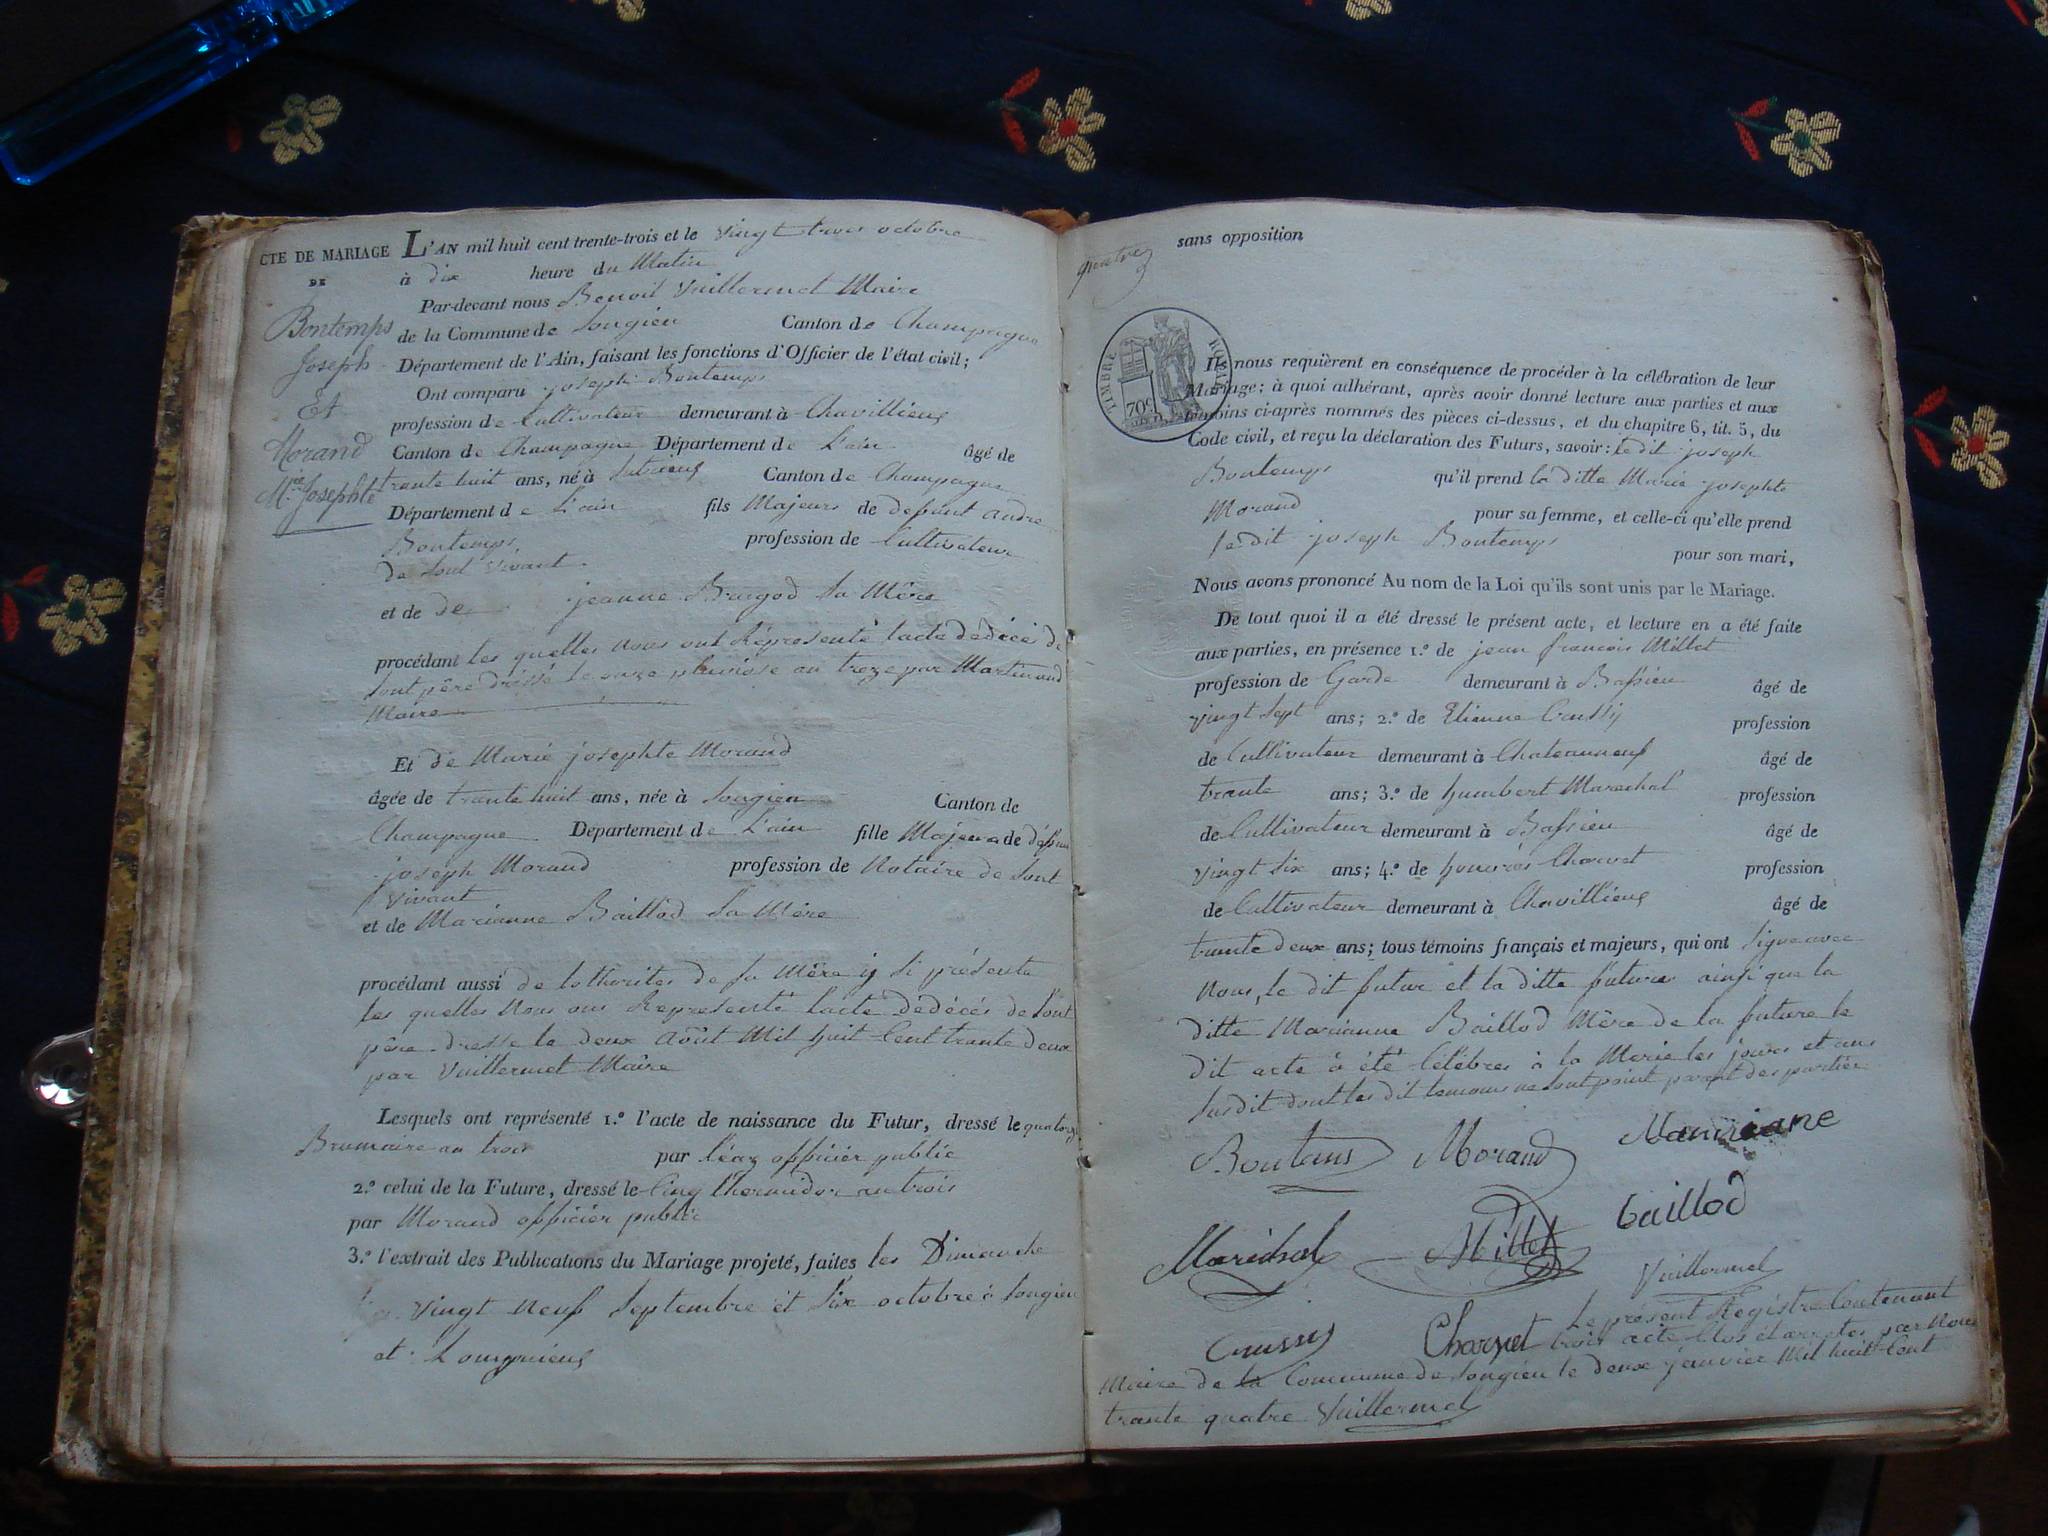 CTE DE MARIAGE
DE
Bontemps
Joseph
Et
Morand
M.rie Josephte
L'AN mil huit cent trente-trois et le vingt trois octobre
à dix heure du Matin
Par-devant nous Benoit Vuillermet Maire
de la Commune de Songieu Canton de Champagne
Département de l'Ain, faisant les fonctions d'Officier de l'état civil;
Ont comparu joseph Bontemps
profession de Cultivateur demeurant à Chavillieug
Canton de Champagne Département de L'ain âgé de
trante huit ans, né à Canton de Champagne
Département de L'ain fils Majeurs de defunt andre
Bontemps, profession de Cultivateur
de Sont vivant
et de de jeanne Brugod Sa Mère
procédant les quelles nous ont Représenté lacte dedécés de
Sont père dressé le onze pluviose an treze par Martinand
Maire
Et de Marie josephte Morand
âgée de trante huit ans, née à Songieu Canton de
Champagne Département de L'ain fille Majeure de défunt
joseph Morand profession de Notaire de Sont
vivant
et de Marianne Baillod Sa Mère
procédant aussi de lothorites de Sa Mère y Si présente
les quelles Nous ons Représenté lacte dedécés de Sont
père dresse le deux Août Mil huit Cent trante deux
par Vuillermet Maire
Lesquels ont représenté 1.º l'acte de naissance du Futur, dressé le quatorze
Brumaire an trois par officier public
2.º celui de la Future, dressé le Cinq thermidor an trois
par Morand officier public
3.º l'extrait des Publications du Mariage projeté, faites les Dimanche
vingt neuf Septembre et Six octobre à Songieu
et Lompnieug
quatre
sans opposition
TIMBRE ROYAL
70c
Ils nous requièrent en conséquence de procéder à la célébration de leur
Mariage; à quoi adhérant, après avoir donné lecture aux parties et aux
témoins ci-après nommés des pièces ci-dessus, et du chapitre 6, tit. 5, du
Code civil, et reçu la déclaration des Futurs, savoir: le dit joseph
Bontemps qu'il prend la ditte Marie josephte
Morand pour sa femme, et celle-ci qu'elle prend
le dit joseph Bontemps pour son mari,
Nous avons prononcé Au nom de la Loi qu'ils sont unis par le Mariage.
De tout quoi il a été dressé le présent acte, et lecture en a été faite
aux parties, en présence 1.º de jean francois Millet
profession de Garde demeurant à Bassieu âgé de
vingt Sept ans; 2.º de Etienne Crussy profession
de Cultivateur demeurant à Chateauneuf âgé de
trante ans; 3.º de humbert Marechal profession
de Cultivateur demeurant à Bassieu âgé de
vingt Six ans; 4.º de honorés Charvet profession
de Cultivateur demeurant à Chavillieug âgé de
trante deux ans; tous témoins français et majeurs, qui ont Signe avec
Nous, le dit futur et la ditte future ainsi que la
ditte Marianne Baillod Mère de la future le
dit acte à été Célébres à la Merie les jours et ans
Susdit dont les dit temoins ne Sont point parent des parties
Bontems Morand Marriane
Maréchal Millet baillod
Vuillermet
Crussy Charvet
Le présent Régistre Contenant
trois acte Clos et arretes par Nous
Maire de la Commune de Songieu le deux janvier Mil huit Cent
trante quatre Vuillermet